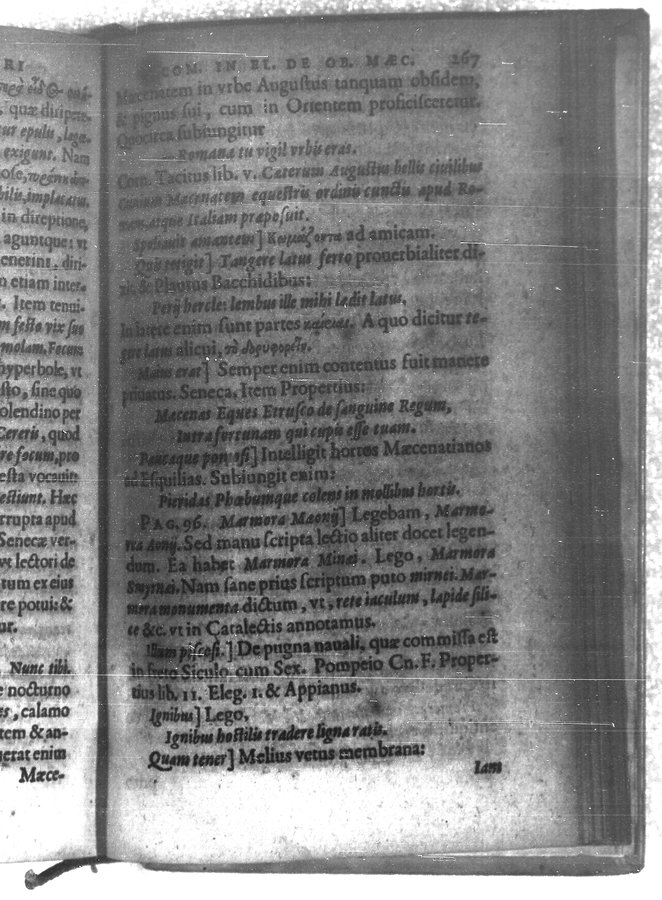 RI
quæ diripere
epulis, legæ
exigunt. Nam
bilis, implacatus,
in direptione,
aguntque: vt
generint, diri-
m etiam inter
. Item tenui-
m festo vix suo
molam. Focum
hyperbole, vt
sto, sine quo
olendino per
Cereris, quod
re focum, pro
esta vocauit
estiunt. Hæc
rrupta apud
Senecæ ver-
vt lectori de
tum ex eius
re potui: &
ur.
Nunc tibi.
e nocturno
es, calamo
tem & an-
uerat enim
Mæce-
COM. IN EL. DE OB. MÆC. 267
Mæcenatem in vrbe Augustus tanquam obsidem,
& pignus sui, cum in Orientem proficisceretur.
Quocirca subiungitur
Romanæ tu vigil vrbis eras.
Corn. Tacitus lib. v. Cæterum Augustus bellis ciuilibus
Cilnium Mæcenatem equestris ordinis cunctis apud Ro-
mam, atque Italiam præposuit.
Spoliauit amantem] Κωμάζοντα ad amicam.
Quis tetigit] Tangere latus ferro prouerbialiter di-
xit. & Plautus Bacchidibus:
Perij hercle: lembus ille mihi lædit latus.
In latere enim sunt partes καίριαι. A quo dicitur te-
gere latus alicui, τὸ δορυφορεῖν.
Maius erat] Semper enim contentus fuit manere
priuatus. Seneca, Item Propertius:
Mæcenas Eques Etrusco de sanguine Regum,
Intra fortunam qui cupis esse tuam.
Paucaque pomosi] Intelligit hortos Mæcenatianos
ad Esquilias. Subiungit enim:
Pieridas Phœbumque colens in mollibus hortis.
PAG. 96. Marmora Mæonij] Legebam, Marmo-
rea Aonij. Sed manu scripta lectio aliter docet legen-
dum. Ea habet Marmora Minæi. Lego, Marmora
Smyrnæi. Nam sane prius scriptum puto mirnei. Mar-
mora monumenta dictum, vt, rete iaculum, lapide sili-
ce &c. vt in Catalectis annotamus.
Illum piscosi.] De pugna nauali, quæ commissa est
in freto Siculo cum Sex. Pompeio Cn. F. Proper-
tius lib. 11. Eleg. 1. & Appianus.
Ignibus] Lego,
Ignibus hostilis tradere ligna ratis.
Quam tener] Melius vetus membrana:
Iam